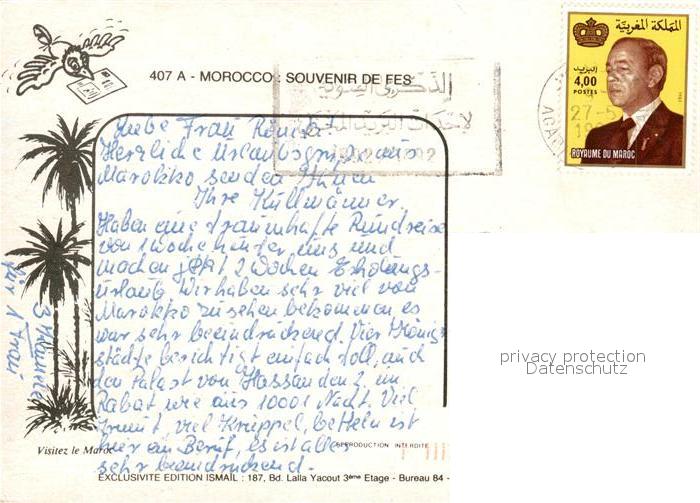 407 A - MOROCCO : SOUVENIR DE FES
المملكة المغربية
البريد
4,00
POSTES
ROYAUME DU MAROC
27-5
الذكرى المئوية
Liebe Frau
Herzliche Urlaubsgrüße aus
Marokko senden Ihnen
Ihre Küllmänner.
Haben eine traumhafte Rundreise
von 1 Woche hinter uns und
machen jetzt 2 Wochen Erholungs-
urlaub. Wir haben sehr viel von
Marokko zu sehen bekommen es
war sehr beeindruckend. Vier Königs
städte besichtigt einfach toll, und
den Palast von Hassan den 2. in
Rabat wie aus 1000 1 Nacht. Viel
Armut, viel Krüppel, betteln ist
hier ein Beruf, es ist alles
sehr beeindruckend.
für 1 Frau
3
privacy protection
Datenschutz
Visitez le Maroc
REPRODUCTION INTERDITE
EXCLUSIVITE EDITION ISMAIL : 187, Bd. Lalla Yacout 3ème Etage - Bureau 84 -